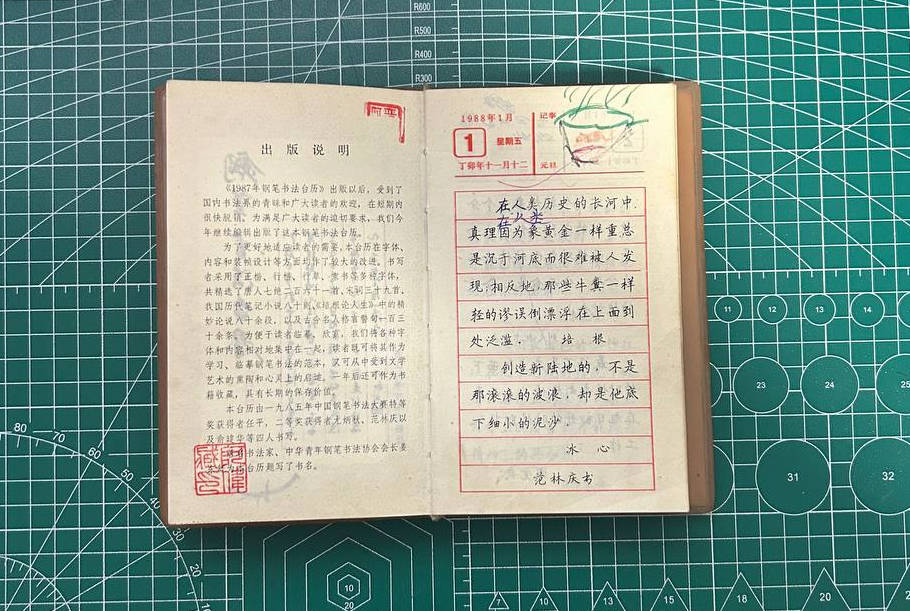 出版说明
《1987年钢笔书法台历》出版以后，受到了
国内书法界的青睐和广大读者的欢迎，在短期内
很快脱销。为满足广大读者的迫切要求，我们今
年继续编辑出版了这本钢笔书法台历。
为了更好地适应读者的需要，本台历在字体、
内容和装帧设计等方面均作了较大的改进。书写
者采用了正楷、行楷、行草、隶书等多种字体，
共精选了唐人七绝二百六十一首，宋词三十九首，
我国历代笔记小说八十则，《结根论人生》中的精
妙论说八十余段，以及古今名人格言警句一百三
十余条。为便于读者临摹、欣赏，我们将各种字
体和内容相对地集中在一起，读者既可将其作为
学习、临摹钢笔书法的范本，又可从中受到文学
艺术的熏陶和心灵上的启迪，一年后还可作为书
籍收藏，具有长期的保存价值。
本台历由一九八五年中国钢笔书法大赛特等
奖获得者任平，二等奖获得者尤炳秋、范林庆以
及俞建华等四人书写。
书法家、中华青年钢笔书法协会会长姜
台历题写了书名。
1988年1月
记事
1
星期五
丁卯年十一月十二
元旦
在人类历史的长河中，
在人类
真理因为象黄金一样重总
是沉于河底而很难被人发
现，相反地，那些牛粪一样
轻的谬误倒漂浮在上面到
处泛滥。 培 根
创造新陆地的，不是
那滚滚的波浪，却是他底
下细小的泥沙。
冰 心
范林庆书
R600
R500
R400
R300
11
12
13
14
23
24
25
31
32
80
70
60
50
40
30
20
10
10
20
7
10
13
15
20